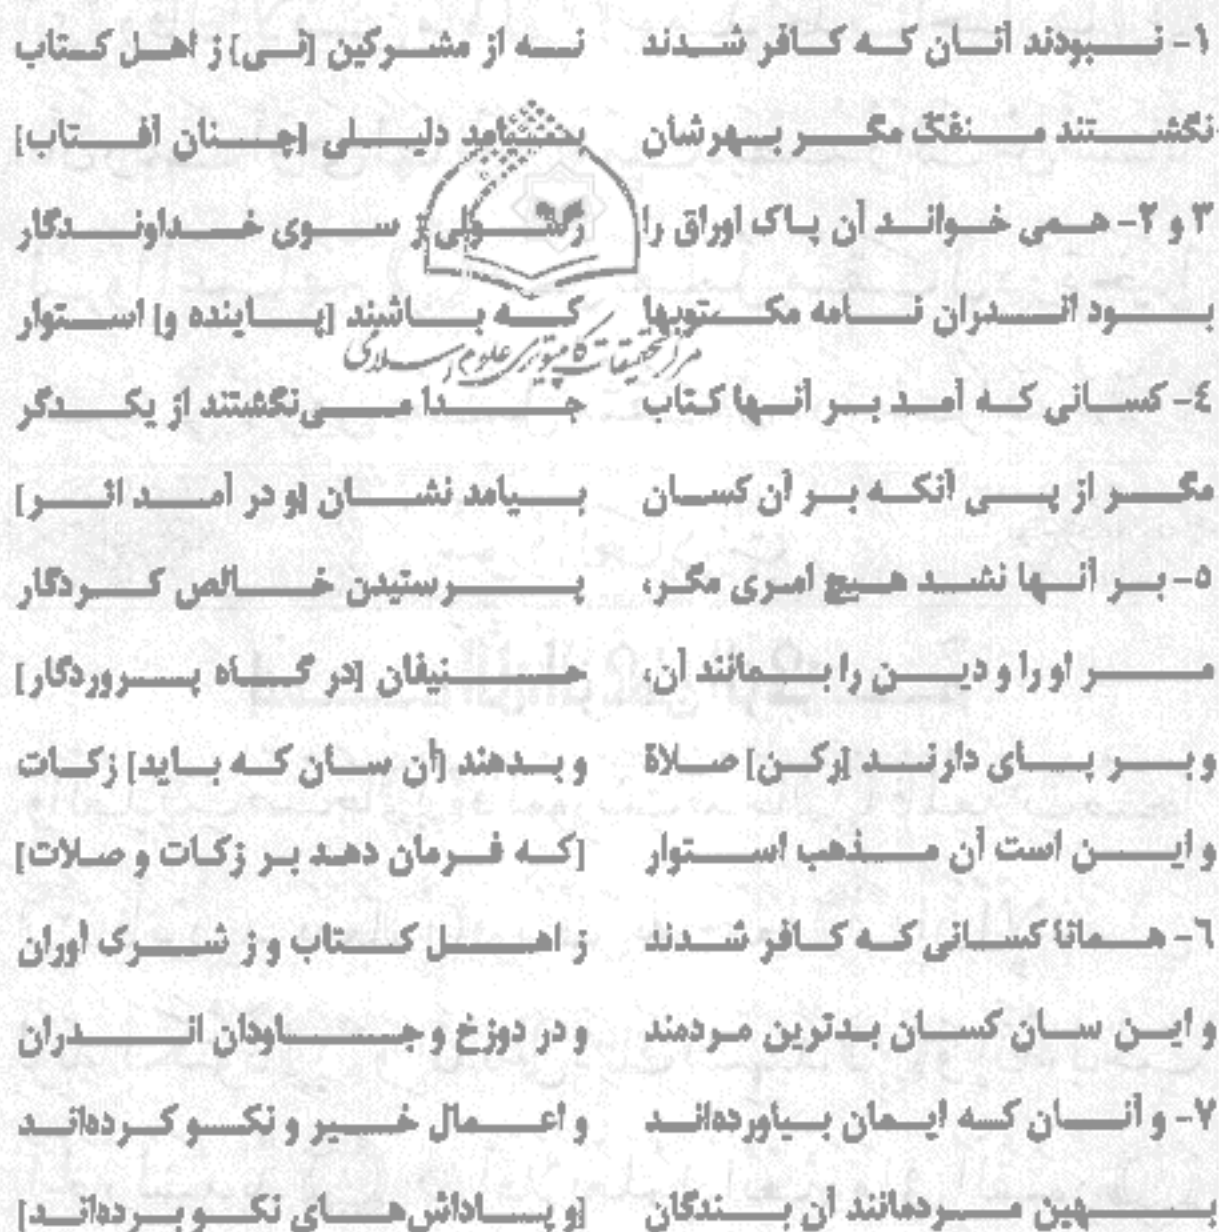 ۱- نبودند آنان که کافر شدند نه از مشرکین [نی] ز اهل کتاب
نگشتند منفک مگر بهرشان بیامد دلیلی [چنان آفتاب]
۳ و ۲- همی خواند آن پاک اوراق را رسولی ز سوی خداوندگار
بود اندران نامه مکتوبها که باشند [پاینده و] استوار
مرکز تحقیقات کامپیوتری علوم اسلامی
۴- کسانی که آمد بر آنها کتاب جدا می‌نگشتند از یکدگر
مگر از پی آنکه بر آن کسان بیامد نشان [و در آمد اثر]
۵- بر آنها نشد هیچ امری مگر، پرستیدن خالص کردگار
مر او را و دین را بمانند آن، حنیفان [در گاه پروردگار]
و بر پای دارند [رکن] صلاة و بدهند [آن سان که باید] زکات
و این است آن مذهب استوار [که فرمان دهد بر زکات و صلات]
۶- همانا کسانی که کافر شدند ز اهل کتاب و ز شرک آوران
و این سان کسان بدترین مردمند و در دوزخ و جاودان اندران
۷- و آنان که ایمان بیاورده‌اند و اعمال خیر و نکو کرده‌اند
بهین مردمانند آن بندگان [و پاداش‌های نکو برده‌اند]